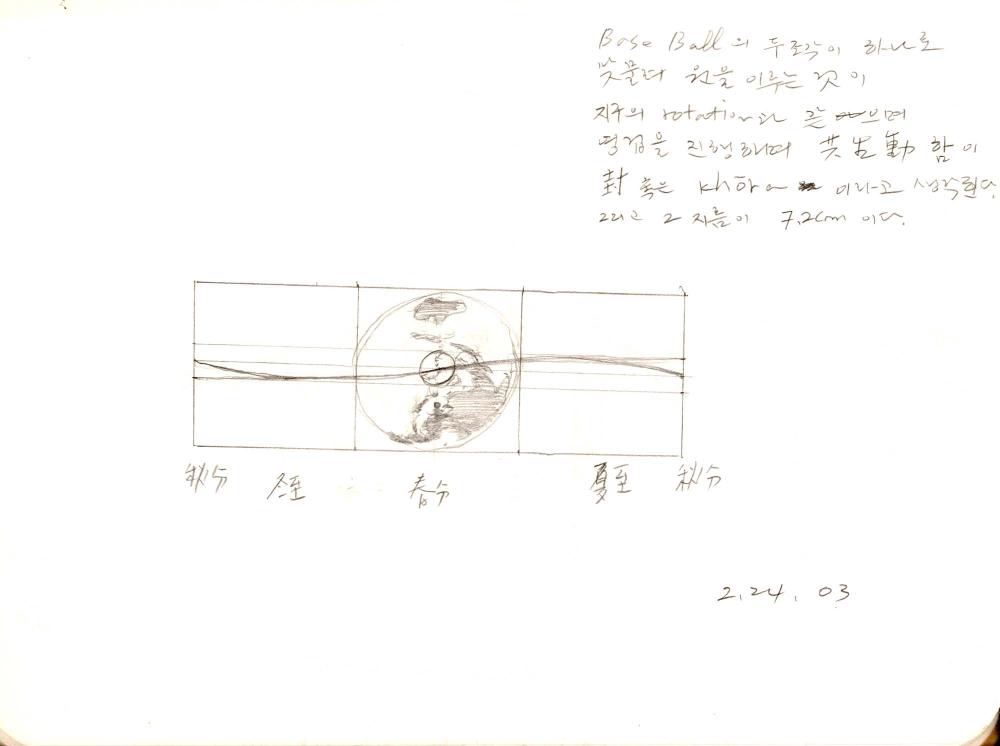 Base Ball의 두조각이 하나로
맞물려 원을 이루는 것이
지구의 rotation과 같으며
진행하며 共生動 함이
封 혹은 이라고 생각된다.
그리고 그 지름이 7.2cm 이다.
秋分 冬至 春分 夏至 秋分
2.24.03